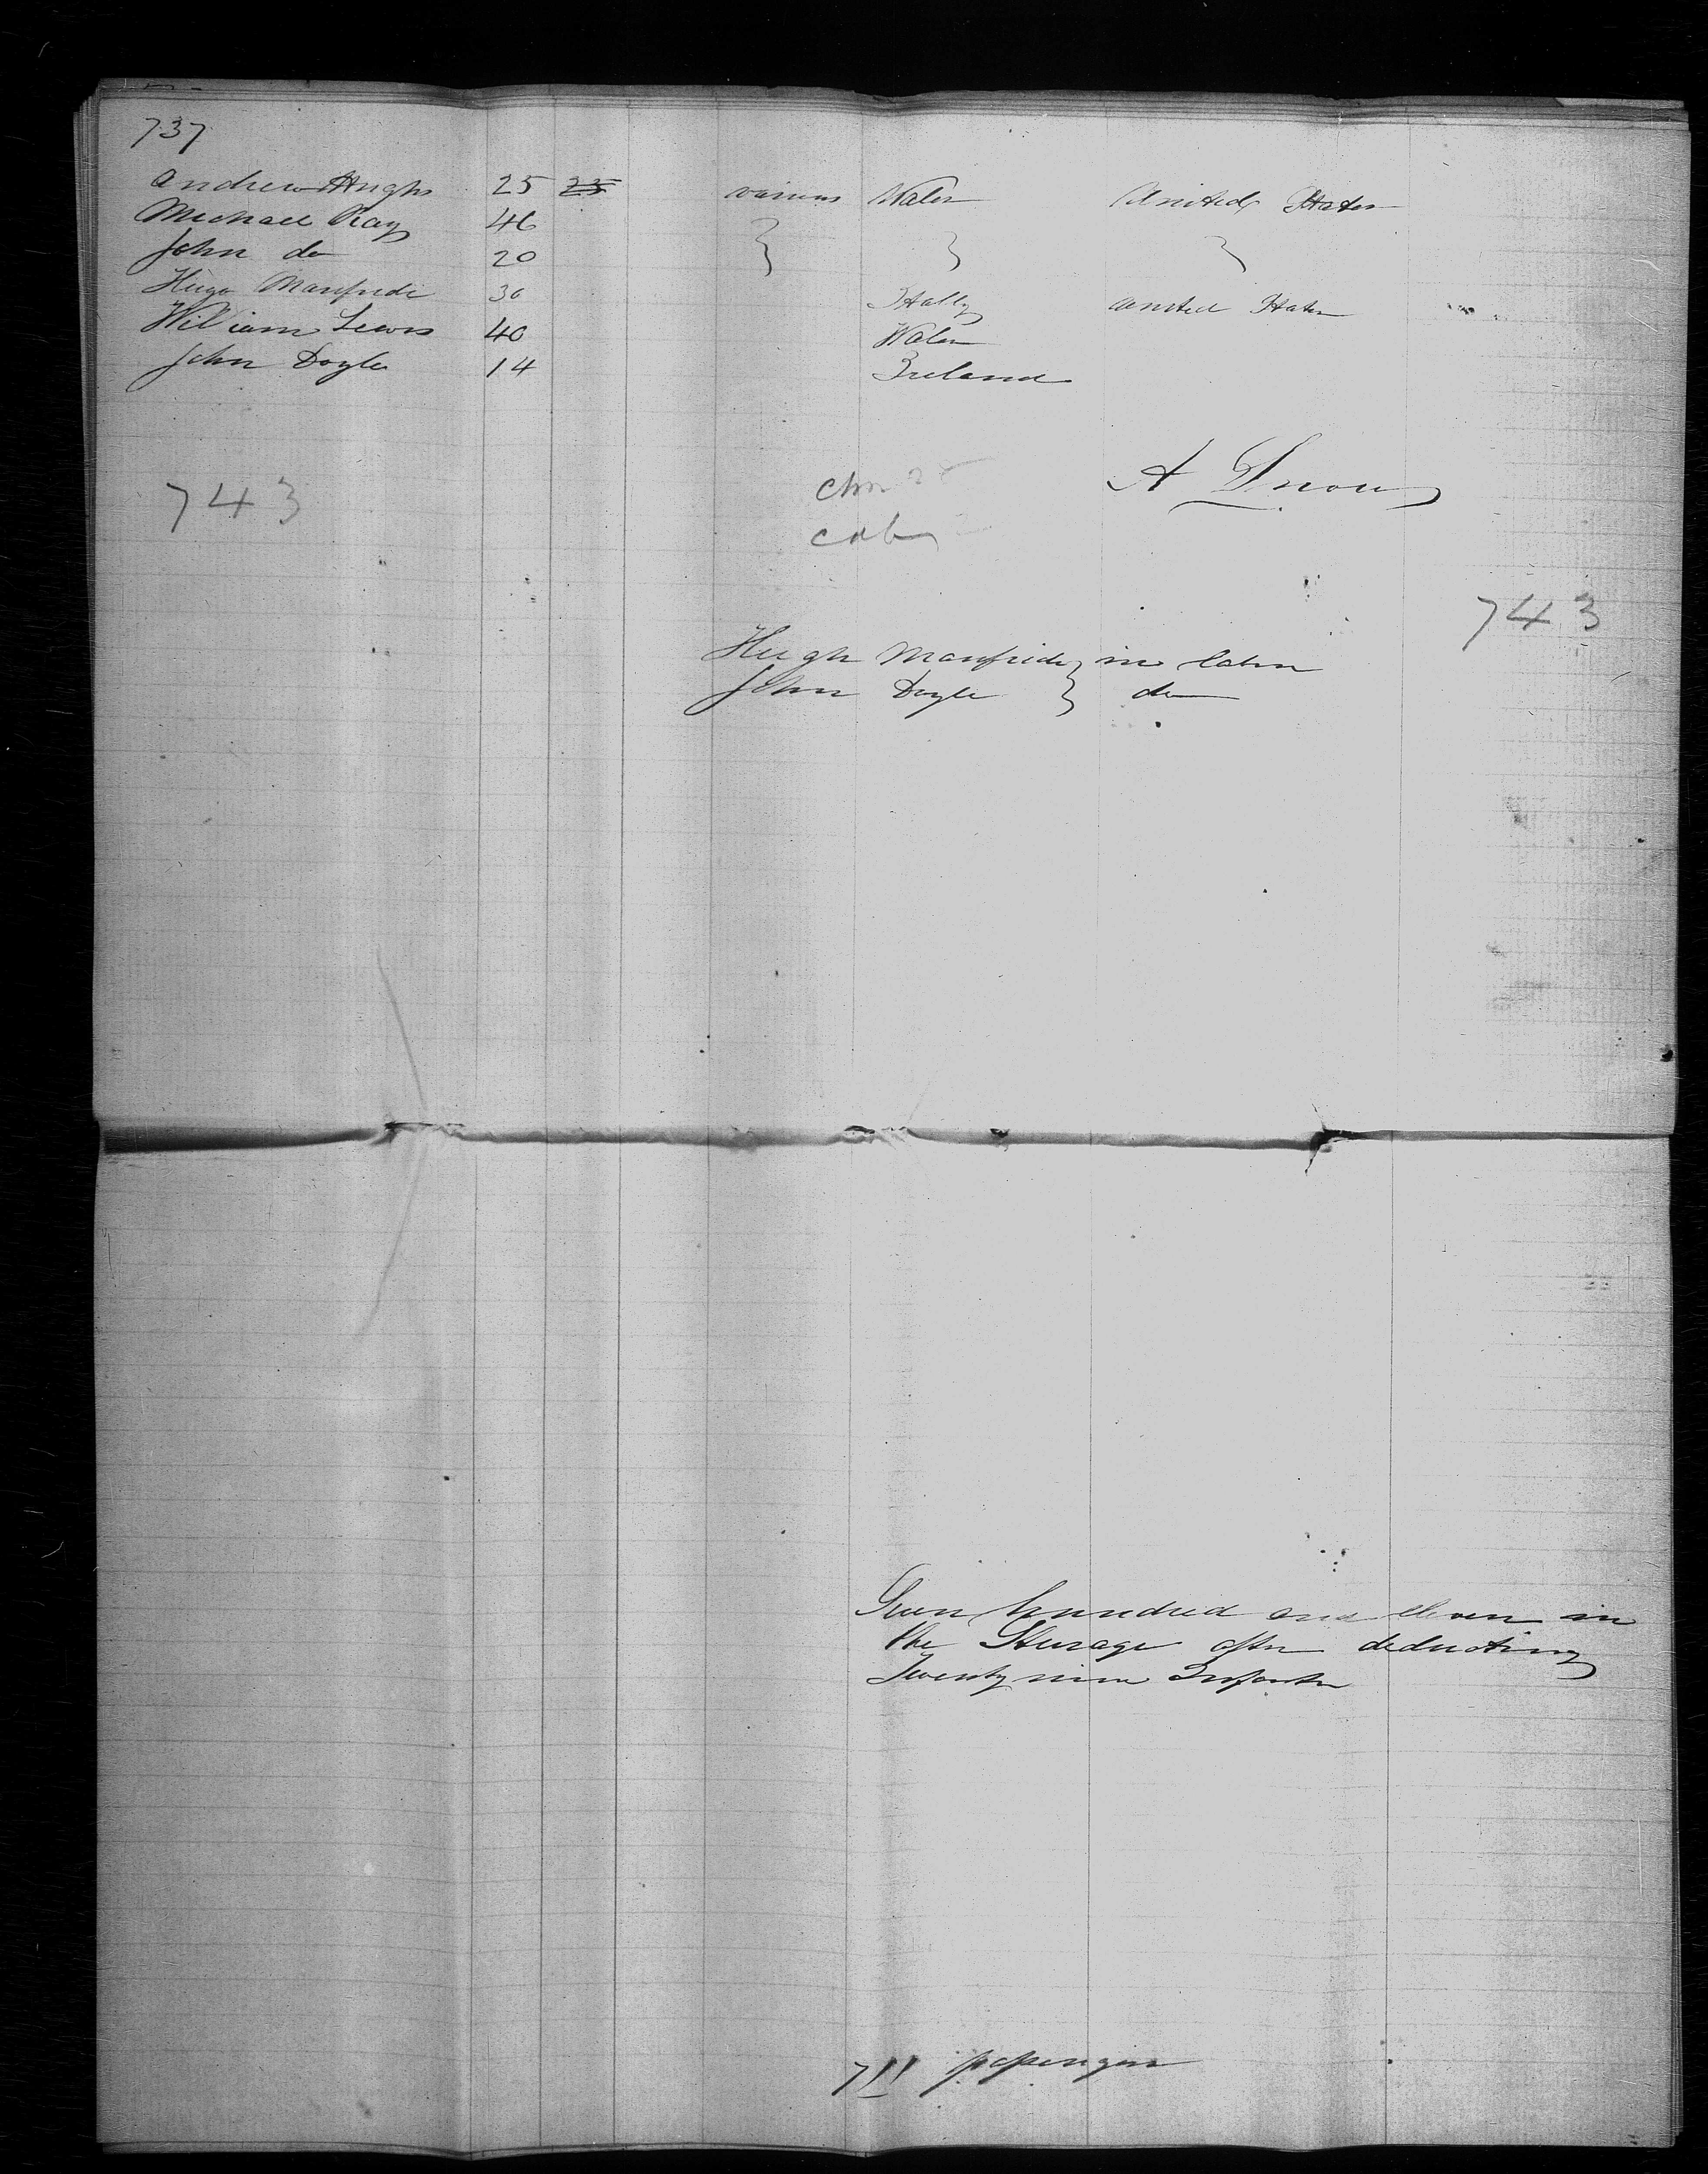 737
Andrew Hughs 25 25 various Wales United States
Michael Ray 46 } } }
John do 20
Hugo Manfredi 30 Itally United States
William Lewis 40 Wales
John Doyle 14 Ireland
743 A Snow
743
Hugh Manfredi } in Cabin
John Doyle } do
Seven hundred and eleven in
the Sterage after deducting
Twenty nine Infants
711 passengers